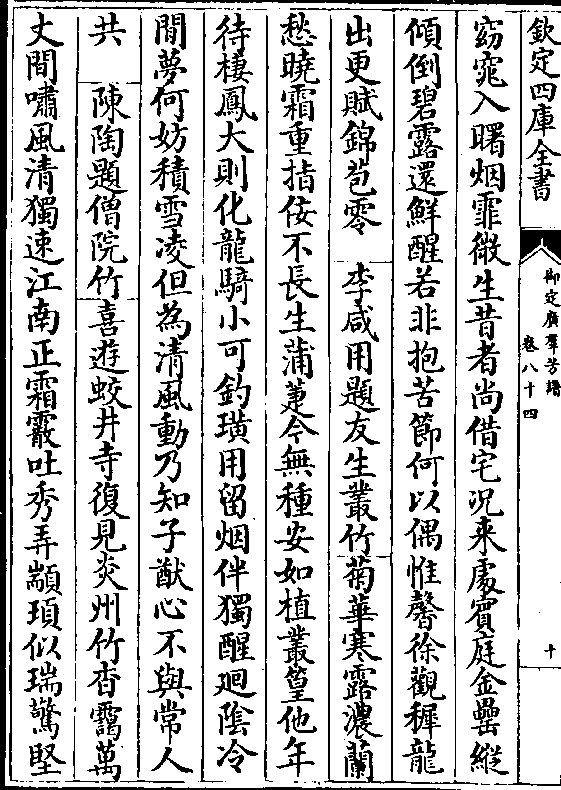 欽定四庫全書
御定廣群芳譜
卷八十四
十
窈窕入曙烟霏微生昔者尚借宅况来處賓庭金罍縱
傾倒碧露還鮮醒若非抱苦節何以偶惟馨徐觀稺龍
出更賦錦苞零 李咸用題友生叢竹菊華寒露濃蘭
愁曉霜重指佞不長生蒲萐今無種安如植叢篁他年
待棲鳳大則化龍騎小可釣璜用留烟伴獨醒廻陰冷
閒夢何妨積雪凌但為清風動乃知子猷心不與常人
共 陳陶題僧院竹喜遊蛟井寺復見炎州竹杳靄萬
丈間嘯風清獨速江南正霜霰吐秀弄顓頊似瑞驚堅